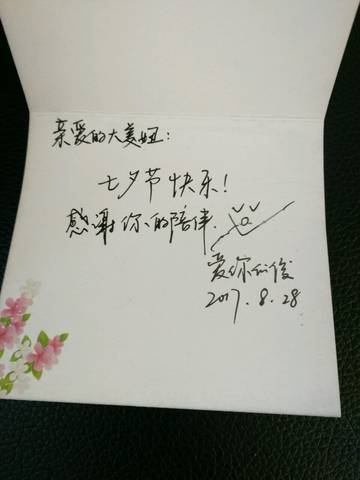 亲爱的大美妞：
七夕节快乐！
感谢你的陪伴.
爱你的俊
2017.8.28